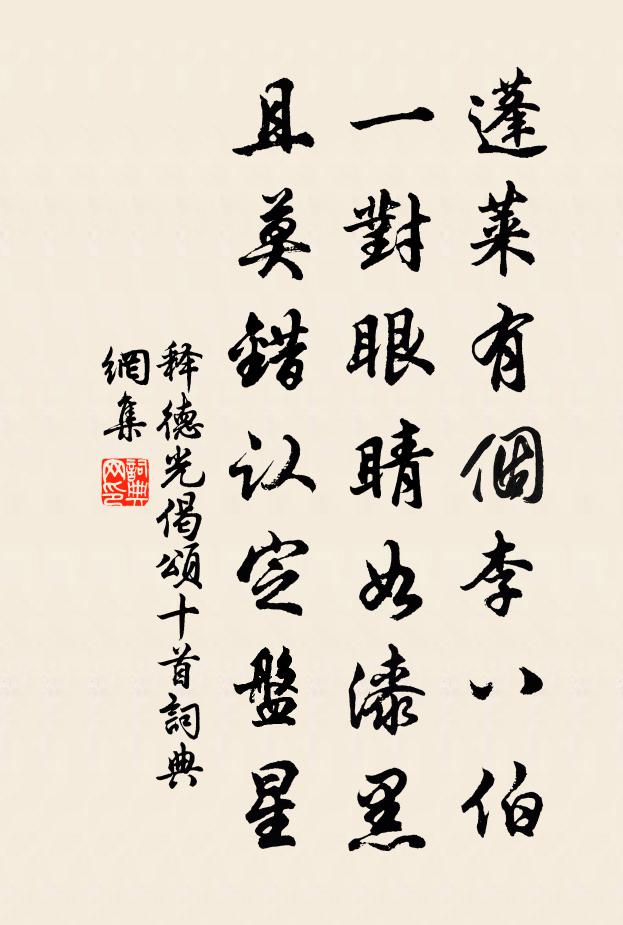 蓬萊有個李八伯
一對眼睛如漆黑
且莫錯认定盤星
释德光偈頌十首詞典
網集
詞典
网印